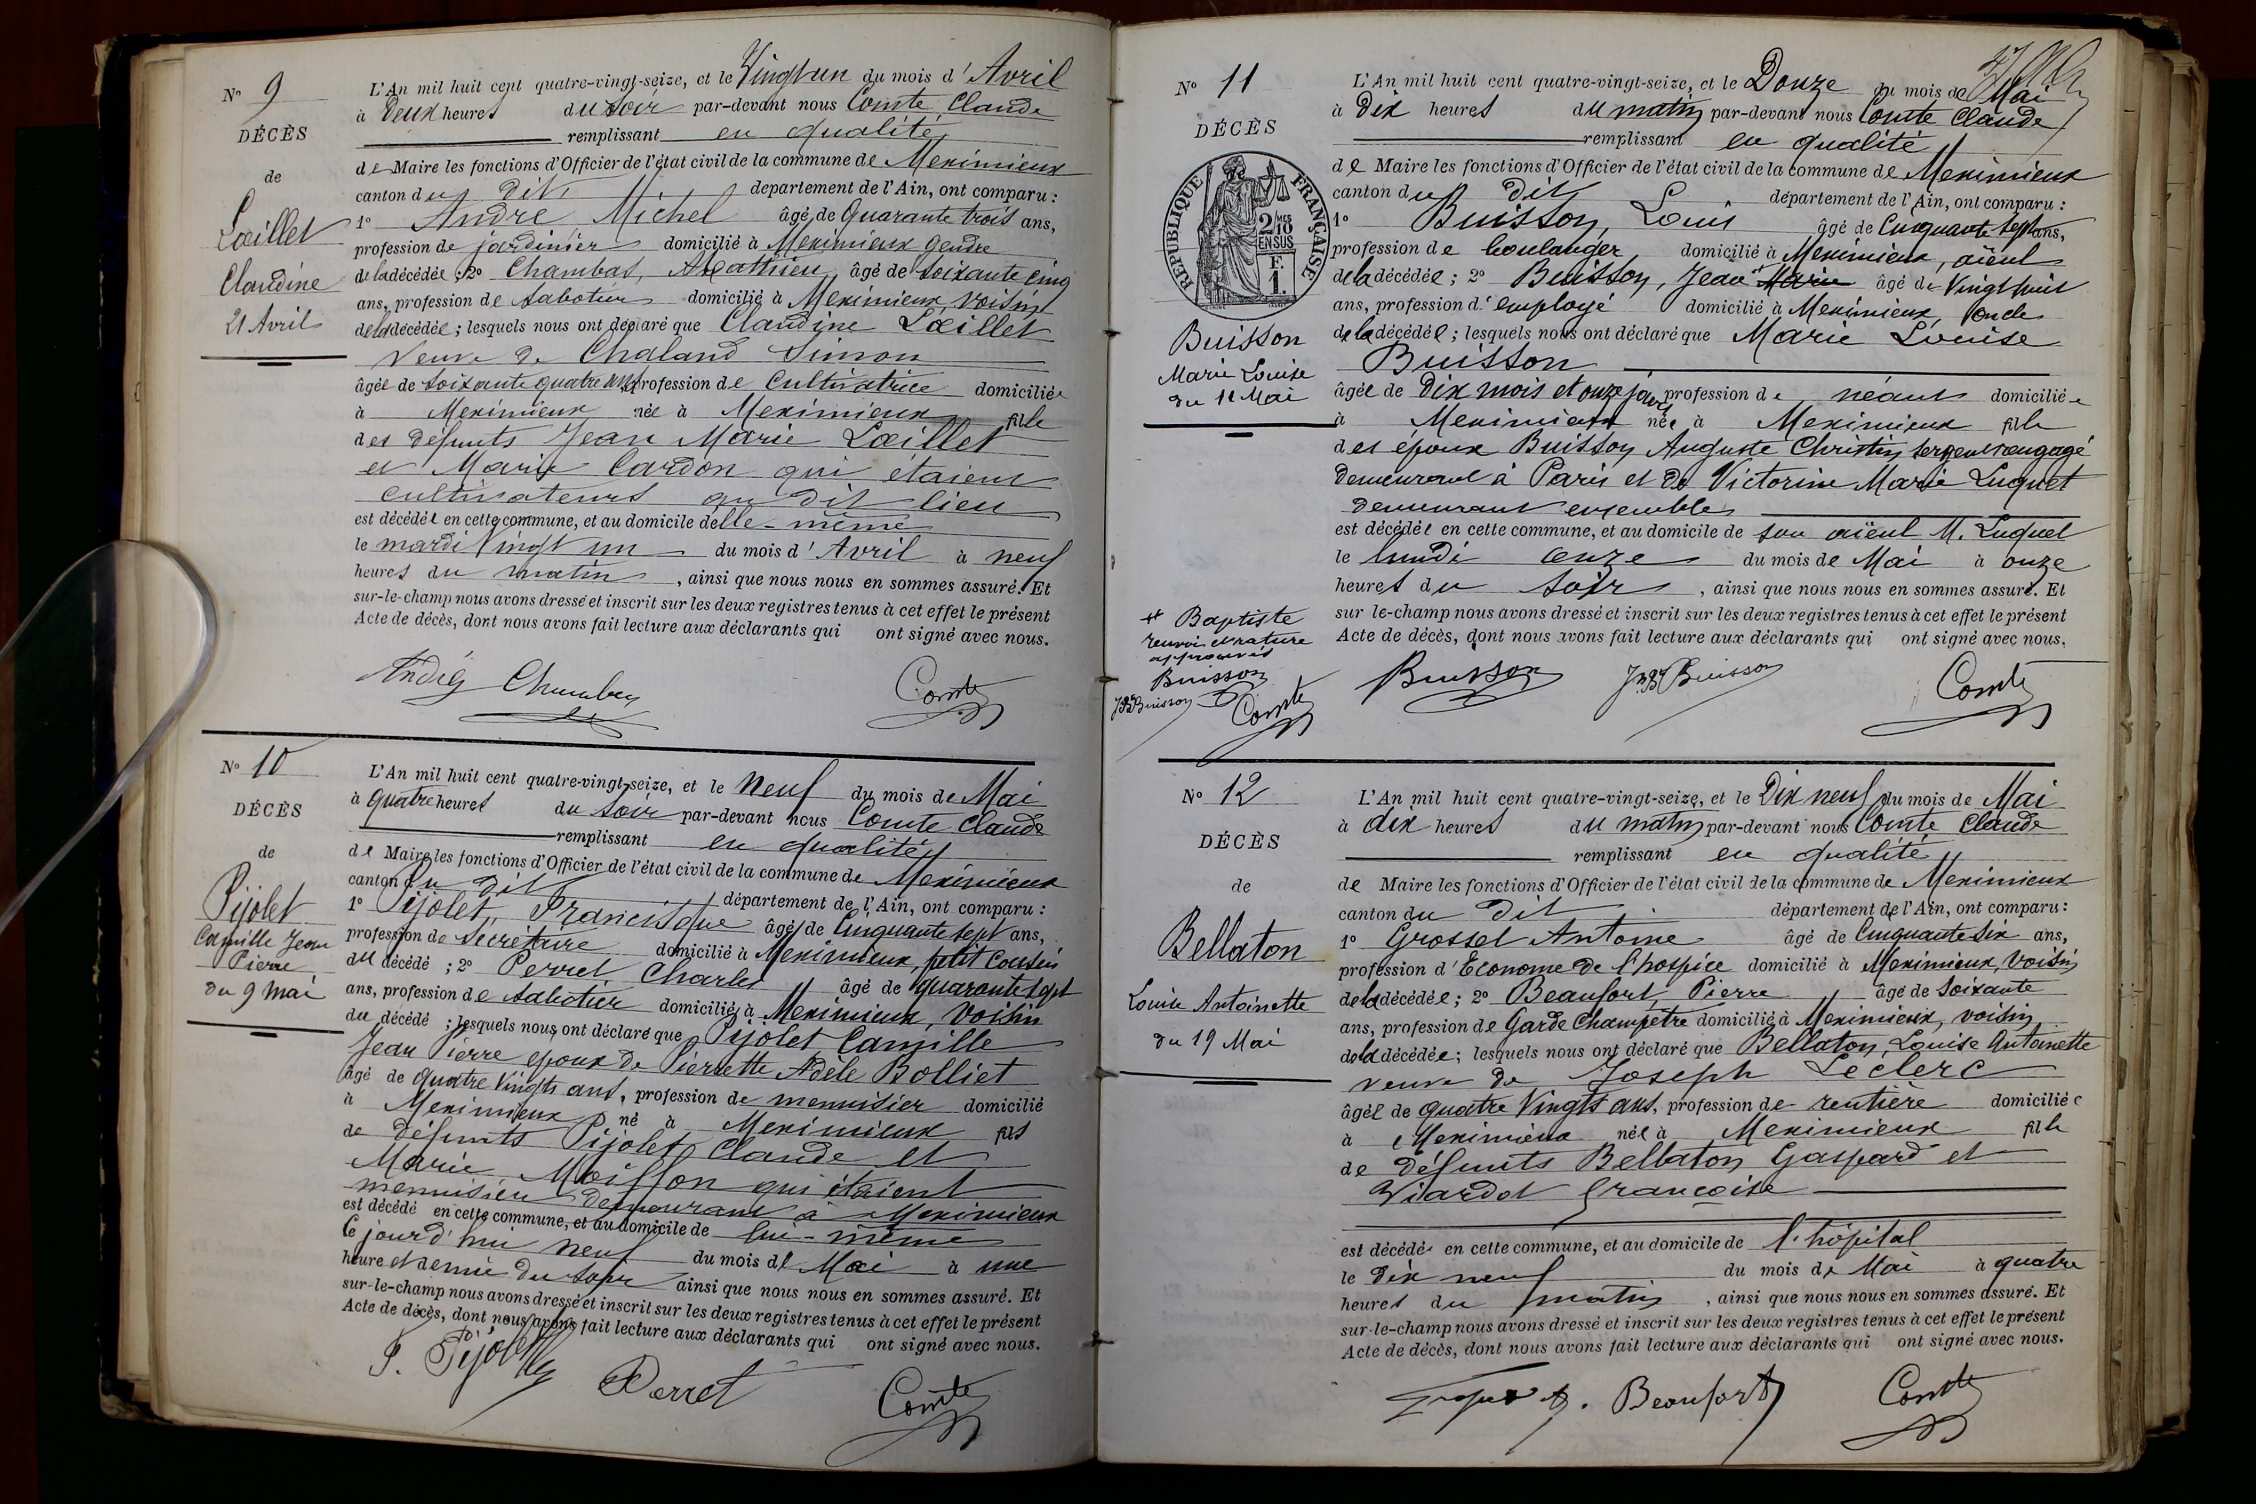 N° 9
DÉCÈS
de
Lœillet
Claudine
21 Avril
L'An mil huit cent quatre-vingt-seize, et le Vingt un du mois d'Avril
à Deux heures du soir par-devant nous Comte Claude
remplissant en qualité
de Maire les fonctions d'Officier de l'état civil de la commune de Meximieux
canton du dit département de l'Ain, ont comparu :
1° André, Michel âgé de Quarante trois ans,
profession de jardinier domicilié à Meximieux gendre
de la décédée ; 2° Chambas, Mathieu, âgé de soixante cinq
ans, profession de sabotier domicilié à Meximieux voisin
de la décédée ; lesquels nous ont déclaré que Claudine Lœillet
veuve de Chaland Simon
âgée de soixante quatre ans profession de Cultivatrice domiciliée
à Meximieux née à Meximieux fille
des défunts Jean Marie Lœillet
et Marie Cardon qui étaient
cultivateurs au dit lieu
est décédée en cette commune, et au domicile d'elle-même
le mardi Vingt un du mois d'Avril à neuf
heures du matin, ainsi que nous nous en sommes assuré. Et
sur-le-champ nous avons dressé et inscrit sur les deux registres tenus à cet effet le présent
Acte de décès, dont nous avons fait lecture aux déclarants qui ont signé avec nous.
André Chambas Comte
N° 10
DÉCÈS
de
Pijolet
Camille Jean
Pierre
du 9 mai
L'An mil huit cent quatre-vingt-seize, et le Neuf du mois de Mai
à quatre heures du soir par-devant nous Comte Claude
remplissant en qualité
de Maire les fonctions d'Officier de l'état civil de la commune de Meximieux
canton du dit département de l'Ain, ont comparu :
1° Pijolet, Francisque âgé de Cinquante sept ans,
profession de secrétaire domicilié à Meximieux, petit cousin
du décédé ; 2° Perret Charles âgé de quarante sept
ans, profession de sabotier domicilié à Meximieux, voisin
du décédé ; lesquels nous ont déclaré que Pijolet Camille
Jean Pierre époux de Pierrette Adèle Bolliet
âgé de quatre vingts ans, profession de menuisier domicilié
à Meximieux né à Meximieux fils
de défunts Pijolet Claude et
Marie Moiffon qui étaient
menuisier demeurant à Meximieux
est décédé en cette commune, et au domicile de lui-même
ce jourd'hui neuf du mois de Mai à une
heure et demie du soir ainsi que nous nous en sommes assuré. Et
sur-le-champ nous avons dressé et inscrit sur les deux registres tenus à cet effet le présent
Acte de décès, dont nous avons fait lecture aux déclarants qui ont signé avec nous.
F. Pijolet Perret Comte
N° 11
DÉCÈS
RÉPUBLIQUE FRANÇAISE
2/10 MES
EN SUS
F.
1.
Buisson
Marie Louise
du 11 Mai
L'An mil huit cent quatre-vingt-seize, et le Douze du mois de Mai
à Dix heures du matin par-devant nous Comte Claude
remplissant en qualité
de Maire les fonctions d'Officier de l'état civil de la commune de Meximieux
canton du dit département de l'Ain, ont comparu :
1° Buisson, Louis âgé de Cinquante sept ans,
profession de boulanger domicilié à Meximieux, aïeul
de la décédée ; 2° Buisson, Jean Marie âgé de vingt huit
ans, profession d'employé domicilié à Meximieux, oncle
de la décédée ; lesquels nous ont déclaré que Marie Louise
Buisson
âgée de Dix mois et onze jours profession de néant domiciliée
à Meximieux née à Meximieux fille
des époux Buisson Auguste Christin sergent rengagé
demeurant à Paris et de Victorine Marie Luquet
demeurant ensemble
est décédée en cette commune, et au domicile de son aïeul M. Luquet
le lundi onze du mois de Mai à onze
heures du soir, ainsi que nous nous en sommes assuré. Et
sur le-champ nous avons dressé et inscrit sur les deux registres tenus à cet effet le présent
Acte de décès, dont nous avons fait lecture aux déclarants qui ont signé avec nous.
+ Baptiste
renvoi et rature
approuvés
Buisson
JB Buisson Comte
Buisson J B Buisson Comte
N° 12
DÉCÈS
de
Bellaton
Louise Antoinette
du 19 Mai
L'An mil huit cent quatre-vingt-seize, et le Dix neuf du mois de Mai
à dix heures du matin par-devant nous Comte Claude
remplissant en qualité
de Maire les fonctions d'Officier de l'état civil de la commune de Meximieux
canton du dit département de l'Ain, ont comparu :
1° Grosset Antoine âgé de Cinquante six ans,
profession d'Econome de l'hospice domicilié à Meximieux, voisin
de la décédée ; 2° Beaufort, Pierre âgé de soixante
ans, profession de Garde Champêtre domicilié à Meximieux, voisin
de la décédée ; lesquels nous ont déclaré que Bellaton, Louise Antoinette
veuve de Joseph Leclerc
âgée de quatre vingts ans, profession de rentière domiciliée
à Meximieux née à Meximieux fille
de défunts Bellaton Gaspard et
Viardot Françoise
est décédée en cette commune, et au domicile de l'hôpital
le Dix neuf du mois de Mai à quatre
heures du matin, ainsi que nous nous en sommes assuré. Et
sur-le-champ nous avons dressé et inscrit sur les deux registres tenus à cet effet le présent
Acte de décès, dont nous avons fait lecture aux déclarants qui ont signé avec nous.
Beaufort Comte